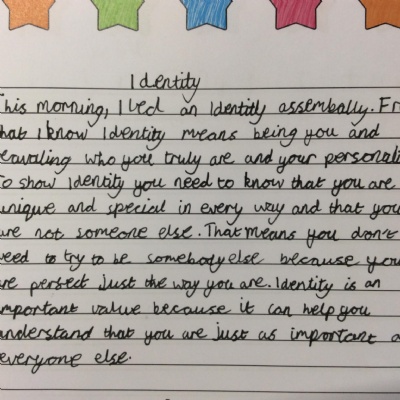 Identity
This morning, I led an Identitly assembally. Fr
hat I know Identity means being you and
revaling who you truly are and your personali
To show Identity you need to know that you are
unique and special in every way and that you
are not someone else. That means you don't
need to try to be somebody else because you
are perfect just the way you are. Identity is an
mportant value because it can help you
understand that you are just as important a
everyone else.